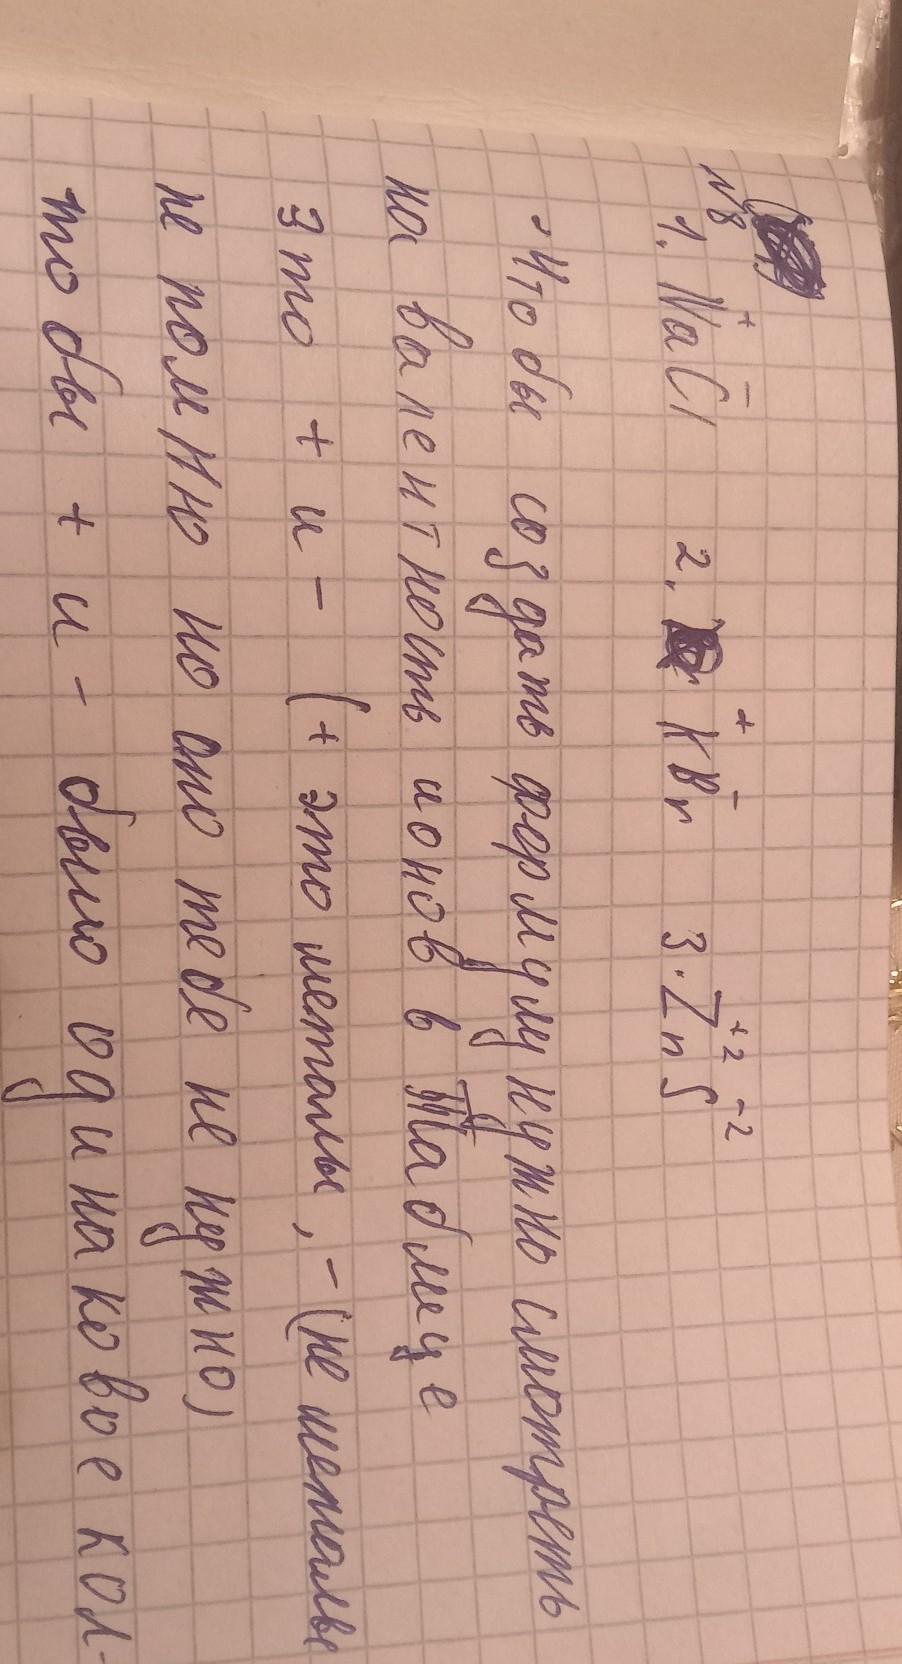 №8
1. Na⁺Cl⁻ 2. K⁺Br⁻ 3. Zn⁺²S⁻²
• Чтобы создать формулу нужно смотреть
на валентность ионов в Таблице
Это + и - (+ это металы, - (не металы
не помню но оно тебе не нужно)
то бы + и - было одинаковое кол-